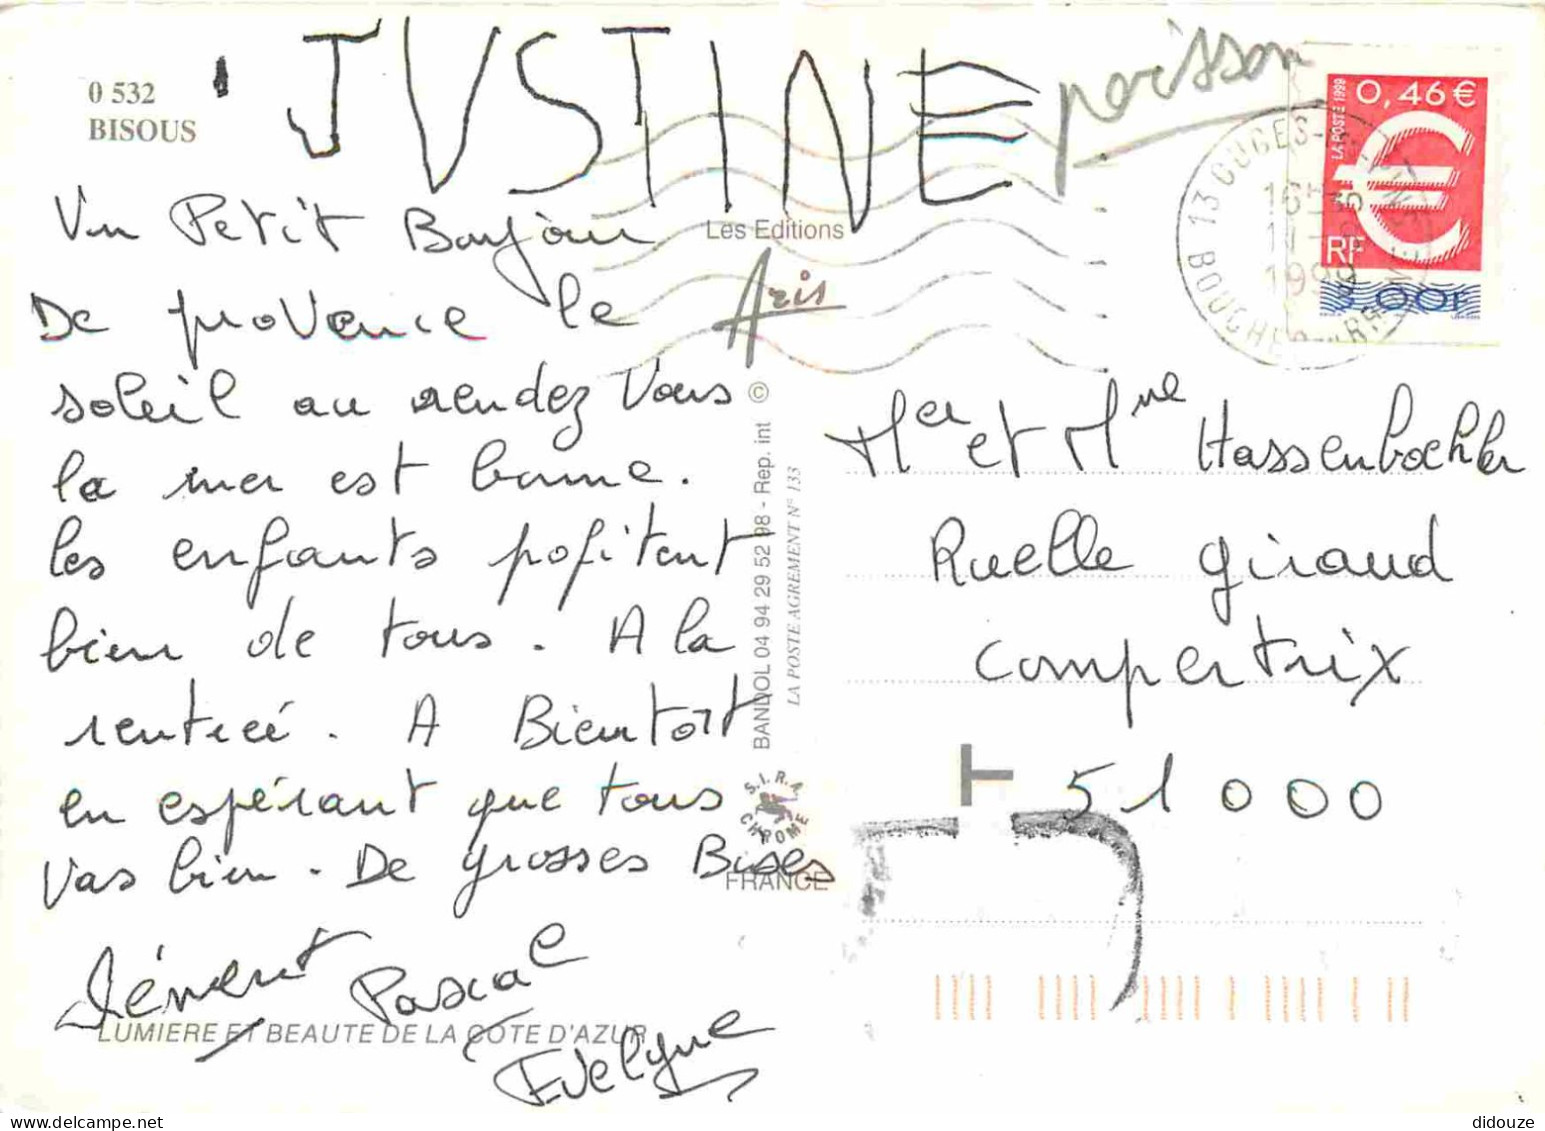 0 532
BISOUS
JUSTINE
poisson
Un Petit Bonjour
De provence le
soleil au rendez vous
la mer est bonne.
les enfants pofitent
bien de tous. A la
rentreé. A Bientott
en espérant que tous
vas bien. De grosses Bises
Clément
Pascale
Evelyne
LUMIERE ET BEAUTE DE LA COTE D'AZUR
Les Editions
Aris
BANDOL 04 94 29 52 98 - Rep. int ©
LA POSTE AGREMENT N° 133
S.I.R.A.
CHROME
FRANCE
LA POSTE 1999
0,46 €
RF
3,00F
1999
Mer et Mme Hassenboehler
Ruelle Giraud
Compertrix
51000
T
didouze